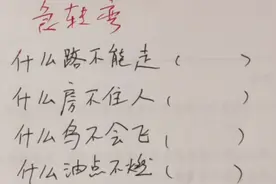 急转弯
什么路不能走（ ）
什么房不住人（ ）
什么鸟不会飞（ ）
什么油点不燃（ ）